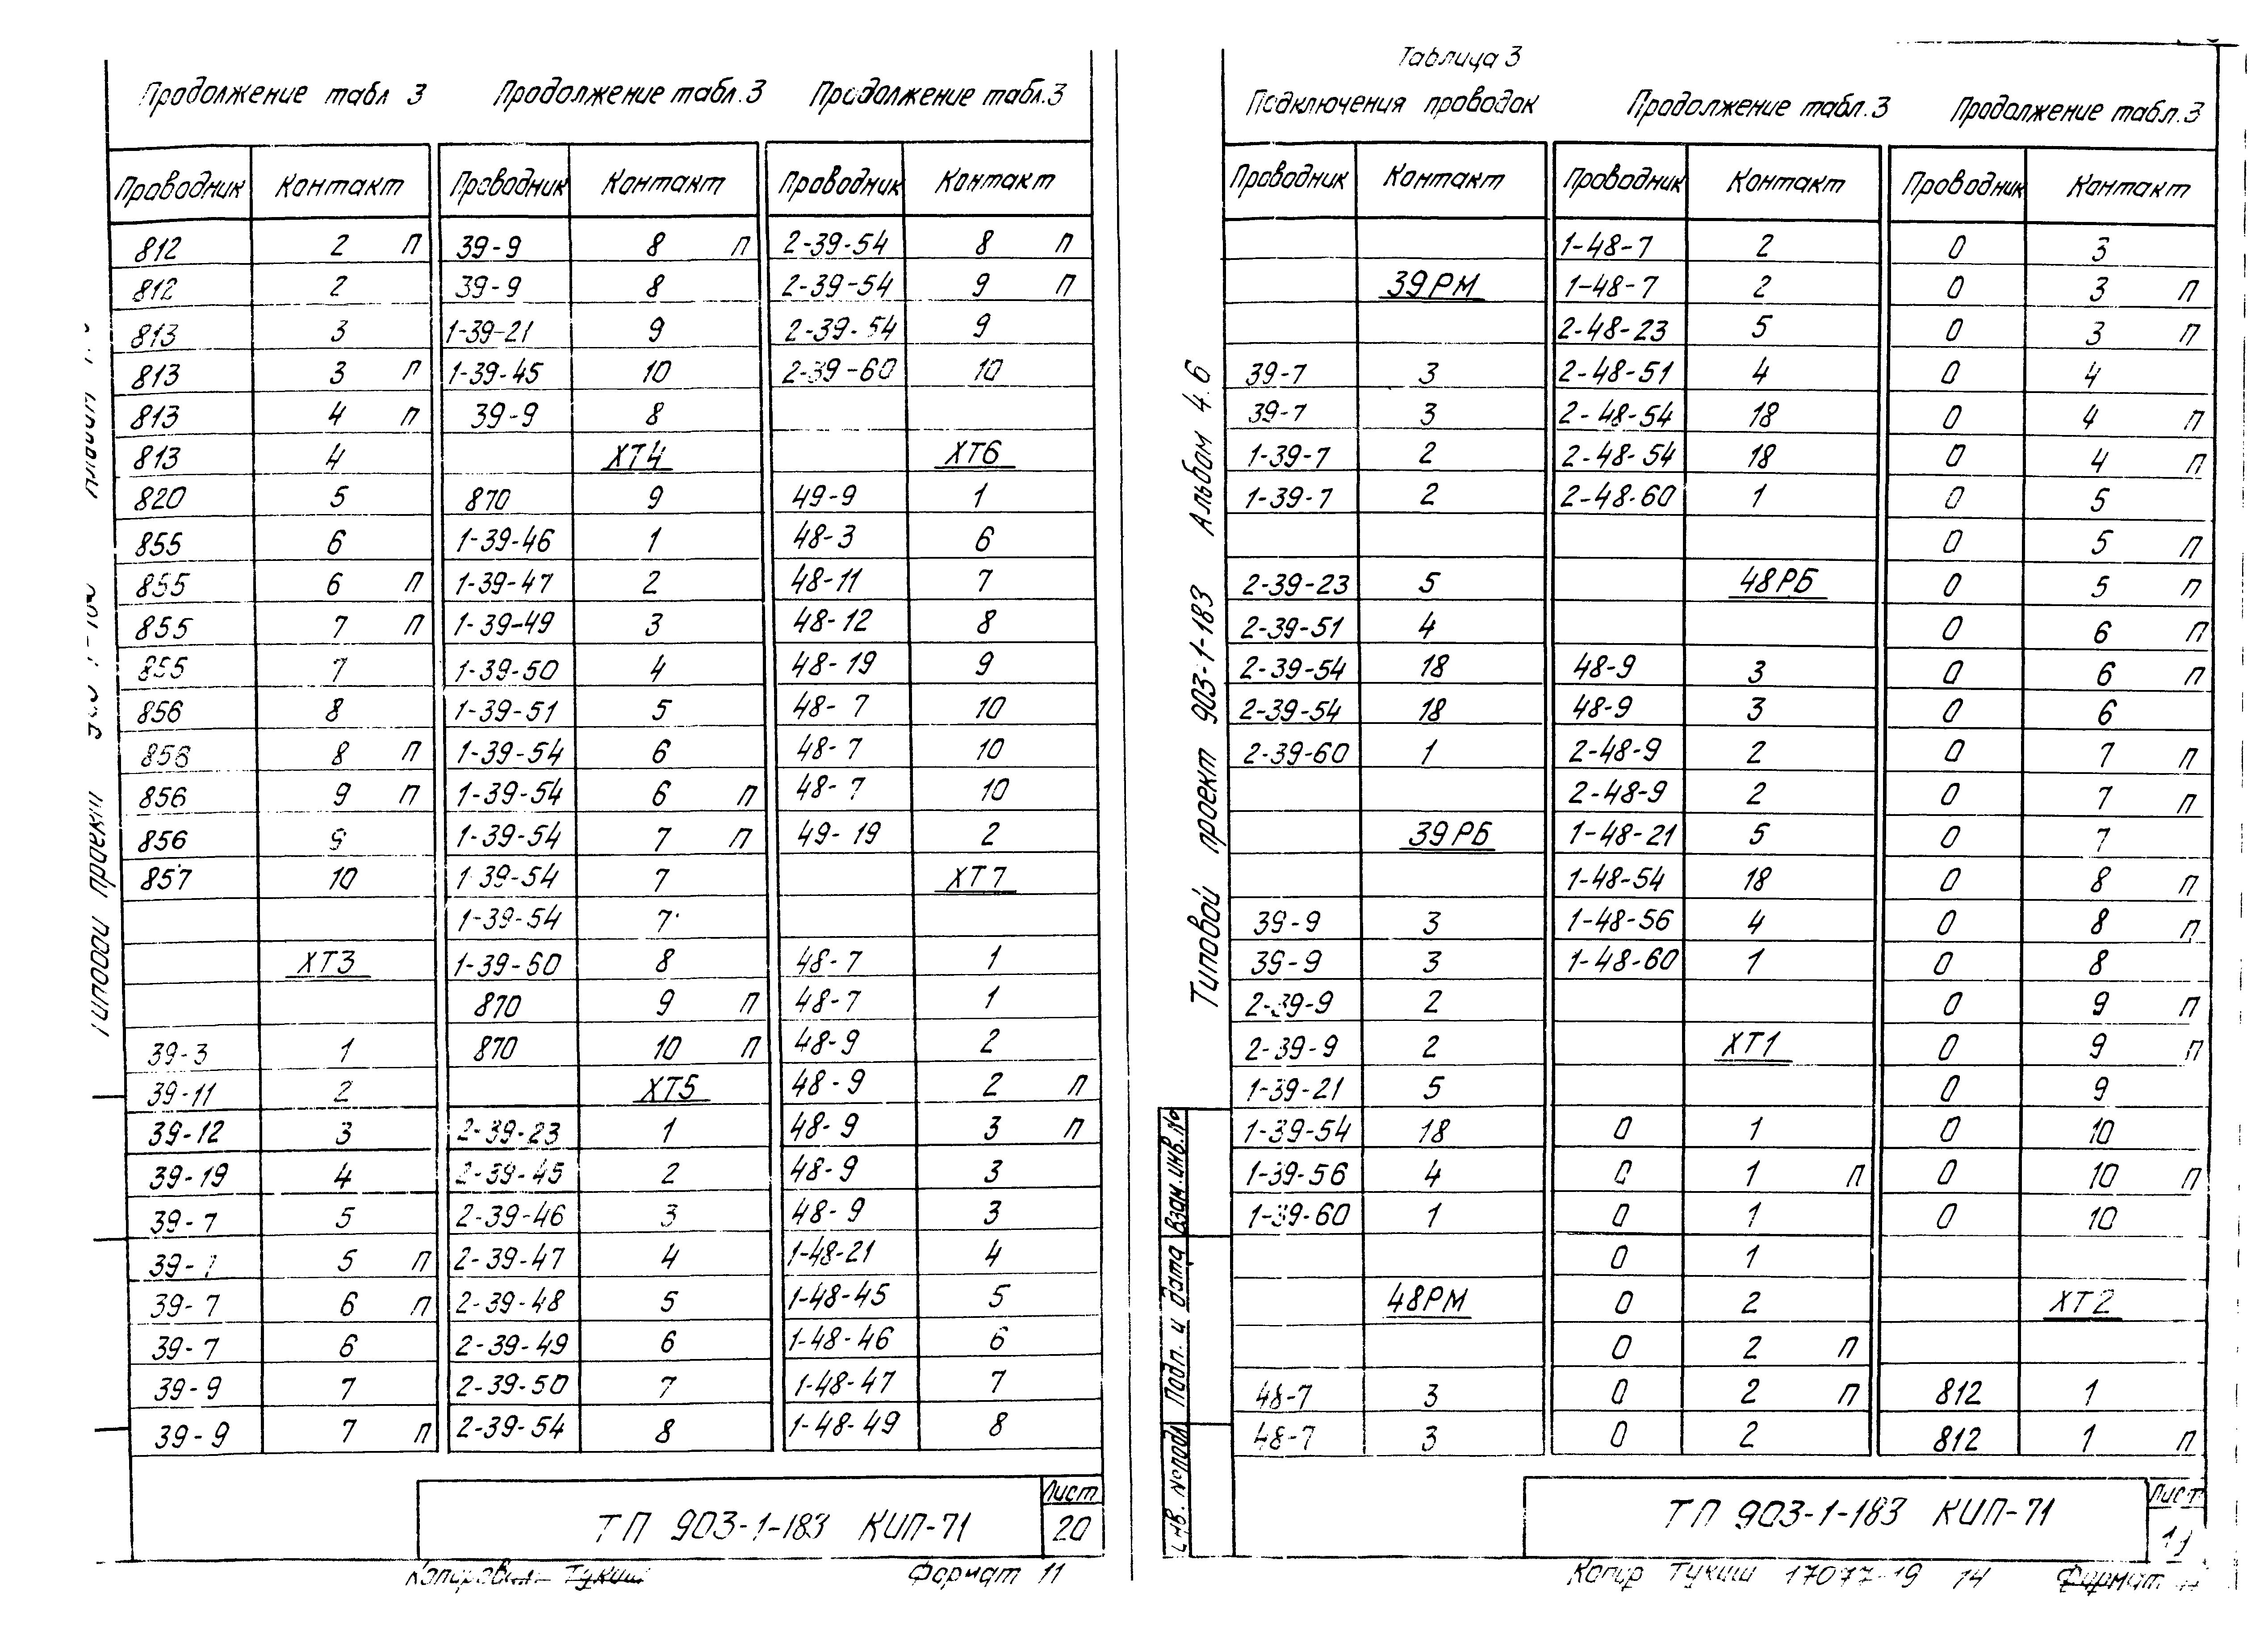 Продолжение табл 3 Продолжение табл.3 Продолжение табл.3
Проводник Контакт Проводник Контакт Проводник Контакт
812 2 П 39-9 8 П 2-39-54 8 П
812 2 39-9 8 2-39-54 9 П
813 3 1-39-21 9 2-39-54 9
813 3 П 1-39-45 10 2-39-60 10
813 4 П 39-9 8
813 4 ХТ4 ХТ6
820 5 870 9 49-9 1
855 6 1-39-46 1 48-3 6
855 6 П 1-39-47 2 48-11 7
855 7 П 1-39-49 3 48-12 8
855 7 1-39-50 4 48-19 9
856 8 1-39-51 5 48-7 10
856 8 П 1-39-54 6 48-7 10
856 9 П 1-39-54 6 П 48-7 10
856 9 1-39-54 7 П 49-19 2
857 10 1-39-54 7 ХТ7
1-39-54 7
ХТ3 1-39-60 8 48-7 1
870 9 П 48-7 1
39-3 1 870 10 П 48-9 2
39-11 2 ХТ5 48-9 2 П
39-12 3 2-39-23 1 48-9 3 П
39-19 4 2-39-45 2 48-9 3
39-7 5 2-39-46 3 48-9 3
39-7 5 П 2-39-47 4 1-48-21 4
39-7 6 П 2-39-48 5 1-48-45 5
39-7 6 2-39-49 6 1-48-46 6
39-9 7 2-39-50 7 1-48-47 7
39-9 7 П 2-39-54 8 1-48-49 8
ТП 903-1-183 КИП-71
Лист
20
Копировал Тукиш Формат 11
Таблица 3
Подключения проводок Продолжение табл.3 Продолжение табл.3
Проводник Контакт Проводник Контакт Проводник Контакт
1-48-7 2 0 3
39РМ 1-48-7 2 0 3 П
2-48-23 5 0 3 П
39-7 3 2-48-51 4 0 4
39-7 3 2-48-54 18 0 4 П
1-39-7 2 2-48-54 18 0 4 П
1-39-7 2 2-48-60 1 0 5
0 5 П
2-39-23 5 48РБ 0 5 П
2-39-51 4 0 6 П
2-39-54 18 48-9 3 0 6 П
2-39-54 18 48-9 3 0 6
2-39-60 1 2-48-9 2 0 7 П
2-48-9 2 0 7 П
39РБ 1-48-21 5 0 7
1-48-54 18 0 8 П
39-9 3 1-48-56 4 0 8 П
39-9 3 1-48-60 1 0 8
2-39-9 2 0 9 П
2-39-9 2 ХТ1 0 9 П
1-39-21 5 0 9
1-39-54 18 0 1 0 10
1-39-56 4 0 1 П 0 10 П
1-39-60 1 0 1 0 10
0 1
48РМ 0 2 ХТ2
0 2 П
48-7 3 0 2 П 812 1
48-7 3 0 2 812 1 П
Типовой проект 903-1-183 Альбом 4.6
Инв. №подл Подп. и дата Взам.инв.№
ТП 903-1-183 КИП-71
Лист
Копир Тукиш 17077-19 14 Формат 11